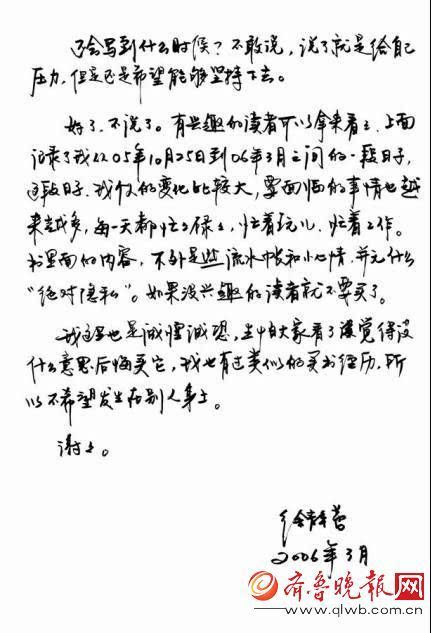 还会写到什么时候?不敢说,说了就是给自己
压力,但是还是希望能够坚持下去。
好了,不说了。有兴趣的读者可以拿来看々,上面
记录了我2005年10月25日到06年3月之间的一段日子,
这段日子,我的变化比较大,要面临的事情也越
来越多,每一天都忙々碌々,忙着玩儿,忙着工作。
书里面的内容,不外是些流水帐和小心情,并无什么
“绝对隐私”。如果没兴趣的读者就不要买了。
我这里也是诚惶诚恐,生怕大家看了觉得没
什么意思后悔买它,我也有过类似的买书经历,所
以不希望发生在别人身上。
谢々。
徐静蕾
2006年3月
齐鲁晚报网
www.qlwb.com.cn